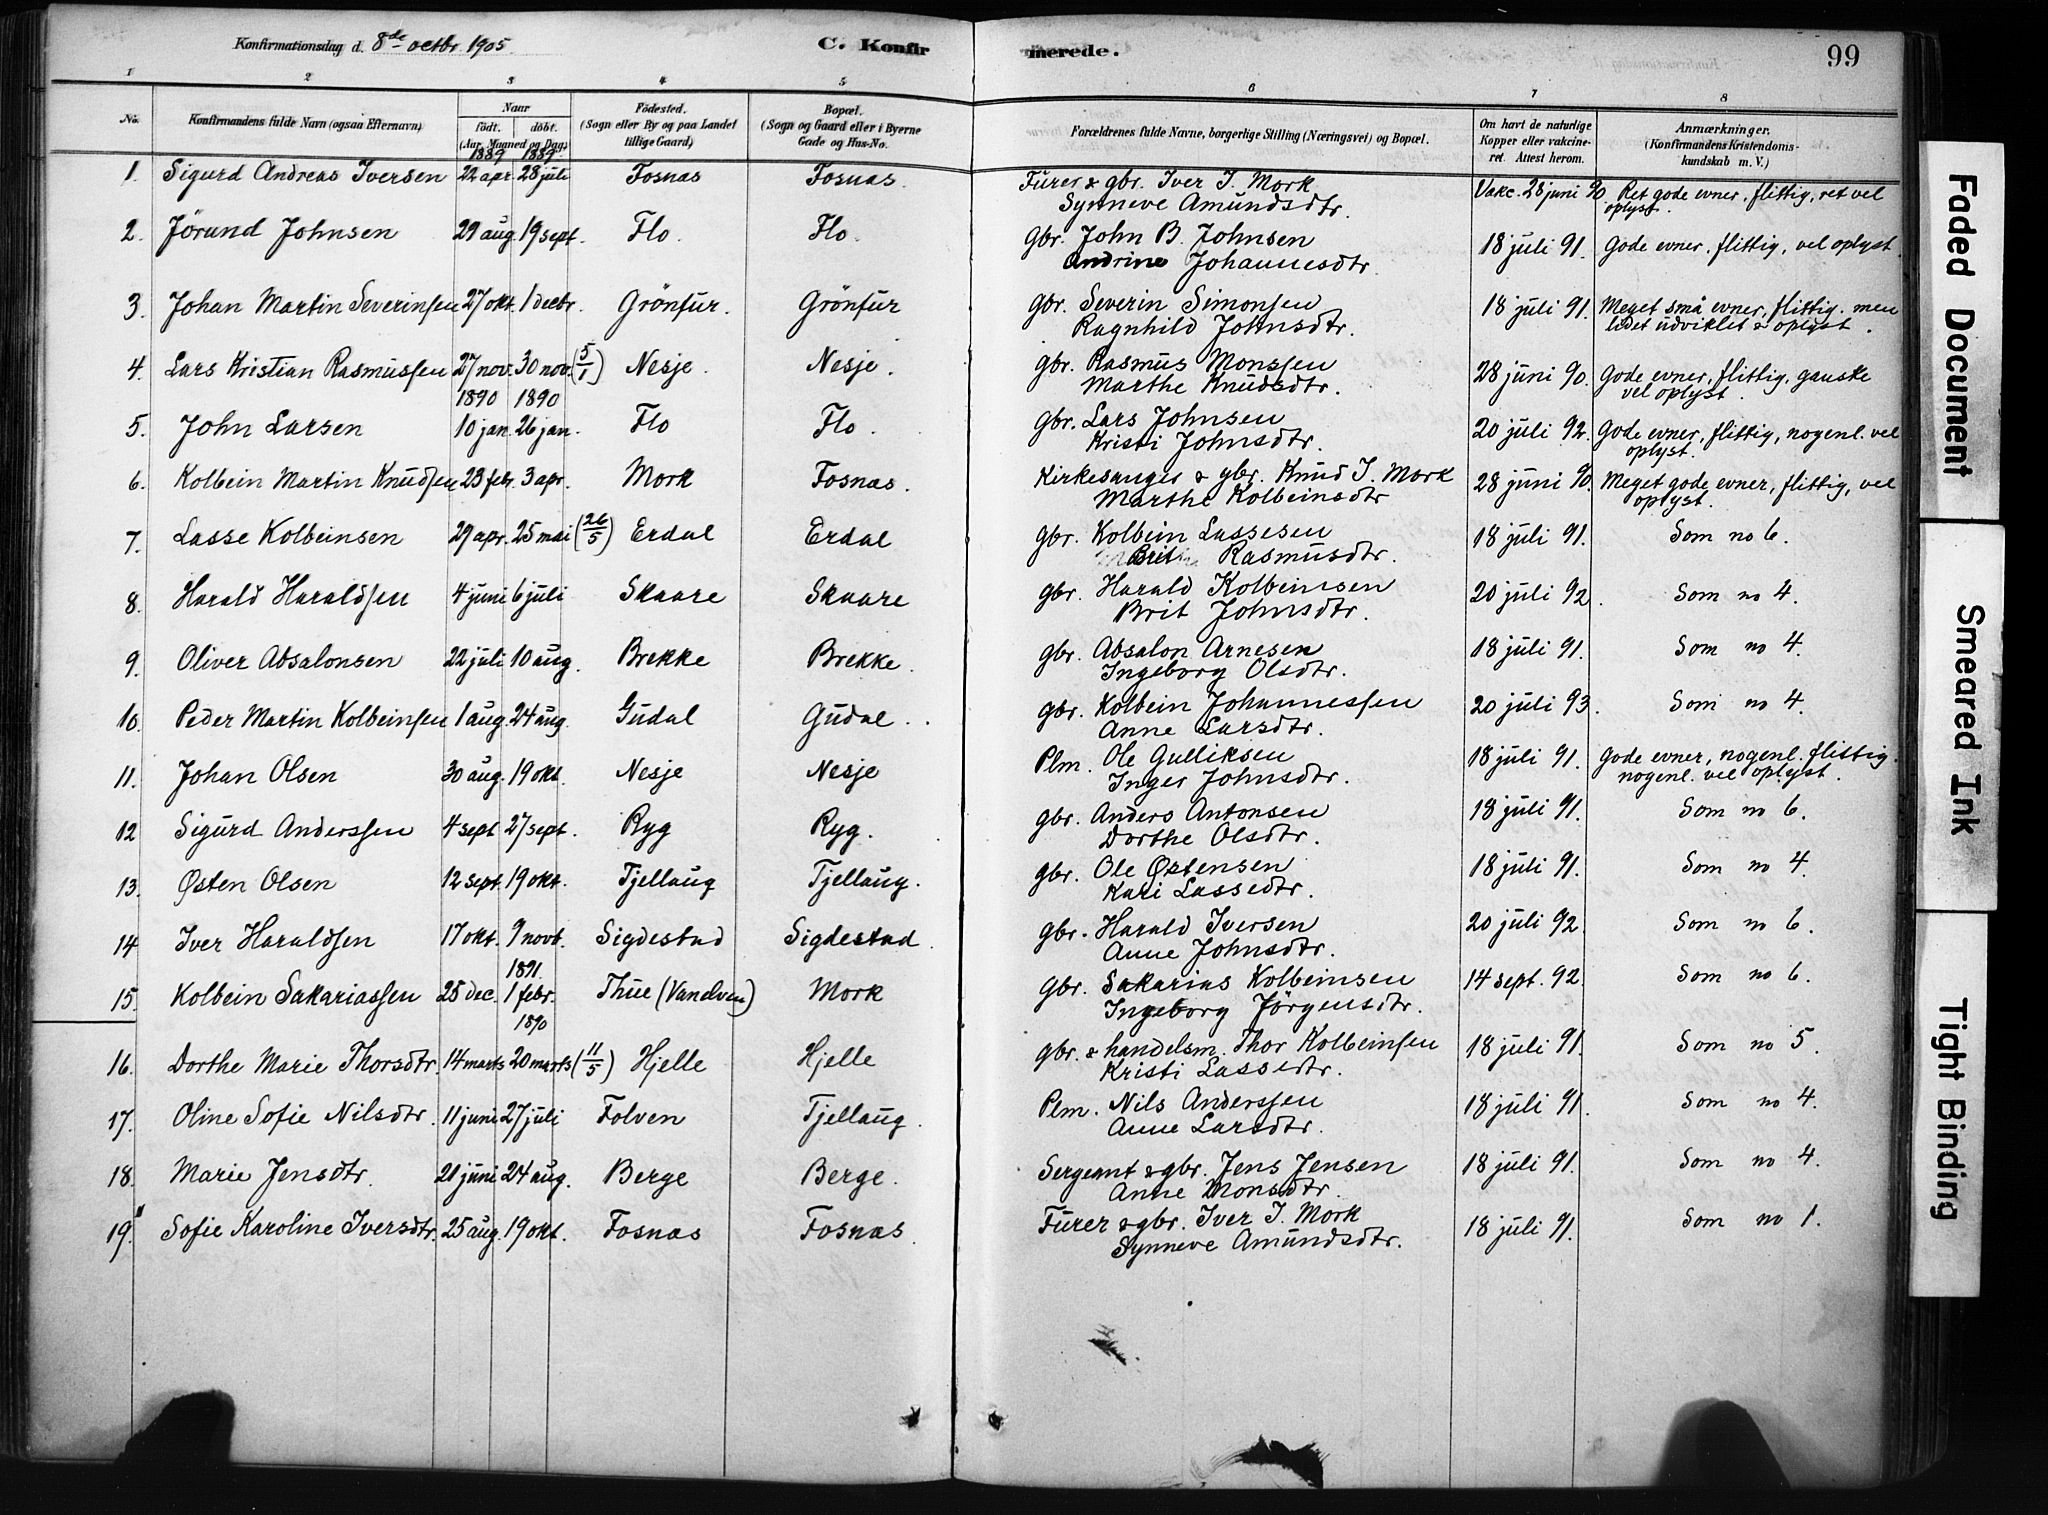 Konfirmationsdag d. 8de octbr. 1905. C. Konfirmerede. 99
1 2 3 4 5 6 7 8
No. Konfirmandens fulde Navn (ogsaa Efternavn) Naar födt. döbt. (Aar, Maaned og Dag) Födested. (Sogn eller By og paa Landet tillige Gaard) Bopæl. (Sogn og Gaard eller i Byerne Gade og Hus-No. Forældrenes fulde Navne, borgerlige Stilling (Næringsvei) og Bopæl. Om havt de naturlige Kopper eller vaccineret. Attest herom. Anmærkninger. (Konfirmandens Kristendomskundskab m. V.)
1889 1889
1. Sigurd Andreas Iversen 22 apr. 28 juli Fosnas Fosnas. Furer & gbr. Iver I. Mork Vakc. 28 juni 90. Ret gode evner, flittig, ret vel
Synneve Amundsdtr. oplyst.
2. Jörund Johnsen 29 aug. 19 sept. Flo. Flo. Gbr. John B. Johnsen 18 juli 91. Gode evner, flittig, vel oplyst.
Andrine Johannesdtr.
3. Johan Martin Severinsen 27 okt. 1 decbr. Grönfur. Grönfur gbr. Severin Simonsen 18 juli 91. Meget små evner, flittig, men
Ragnhild Johnsdtr. lidet udviklet & oplyst.
4. Lars Kristian Rasmussen 27 nov. 30 nov. (5/1) Nesje. Nesje. gbr. Rasmus Monssen 28 juni 90. Gode evner, flittig, ganske
Marthe Knudsdtr. vel oplyst.
1890 1890
5. John Larsen 10 jan. 26 jan. Flo Flo. gbr. Lars Johnsen 20 juli 92. Gode evner, flittig, nogenl. vel
Kristi Johnsdtr. oplyst.
6. Kolbein Martin Knudsen 23 febr. 3 apr. Mork Fosnas. Kirkesanger & gbr. Knud I. Mork 28 juni 90. Meget gode evner, flittig, vel
Marthe Kolbeinsdtr oplyst.
7. Lasse Kolbeinsen 29 apr. 25 mai (26/5) Erdal Erdal gbr. Kolbein Lassesen 18 juli 91. Som no 6.
Brit Rasmusdtr.
8. Harald Haraldsen 4 juni 6 juli Skaare Skaare gbr. Harald Kolbeinsen 20 juli 92. Som no 4.
Brit Johnsdtr.
9. Oliver Absalonsen 22 juli 10 aug. Brekke Brekke. gbr. Absalon Arnesen 18 juli 91. Som no 4.
Ingeborg Olsdtr.
10. Peder Martin Kolbeinsen 1 aug. 24 aug. Gudal Gudal. gbr. Kolbein Johannessen 20 juli 93. Som no 4.
Anne Larsdtr.
11. Johan Olsen 30 aug. 19 okt. Nesje Nesje Plm. Ole Gulliksen 18 juli 91. Gode evner, nogenl. flittig.
Inger Johnsdtr. nogenl. vel oplyst.
12 Sigurd Anderssen 4 sept 27 sept. Ryg Ryg. gbr. Anders Antonsen 18 juli 91. Som no 6.
Dorthe Olsdtr.
13. Østen Olsen 12 sept. 19 okt. Tjellaug Tjellaug. gbr. Ole Østensen 18 juli 91. Som no 4.
Kari Lassedtr.
14 Iver Haraldsen 17 okt. 9 novb. Sigdestad Sigdestad. gbr. Harald Iversen 20 juli 92. Som no 6.
Anne Johnsdtr.
1891.
15. Kolbein Sakariassen 25 dec. 1 febr. Thue (Vandven) Mork gbr. Sakarias Kolbeinsen 14 sept. 92. Som no 6.
Ingeborg Jörgensdtr.
1890
16. Dorthe Marie Thorsdtr. 14 marts 20 marts (11/5) Hjelle Hjelle gbr. & handelsm. Thor Kolbeinsen 18 juli 91. Som no 5.
Kristi Lassedtr.
17. Oline Sofie Nilsdtr. 11 juni 27 juli Folven Tjellaug. Plm. Nils Anderssen 18 juli 91. Som no 4.
Anne Larsdtr.
18. Marie Jensdtr. 21 juni 24 aug. Berge Berge. Sergeant & gbr. Jens Jensen 18 juli 91. Som no 4.
Anne Monsdtr.
19. Sofie Karoline Iversdtr. 25 aug. 19 okt. Fosnas Fosnas. Furer & gbr. Iver I. Mork 18 juli 91. Som no 1.
Synneve Amundsdtr.
Faded Document
Smeared Ink
Tight Binding